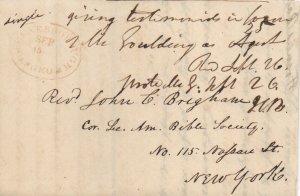 single
giving testimonials in favor
of Mr Goulding as Agent
Recd Sept. 26.
wrote Mr G. Sept 26.
Rev. John C. Brigham
Cor. Sec. Am. Bible Society.
No. 115 Nassau St.
New York.
SEP
15